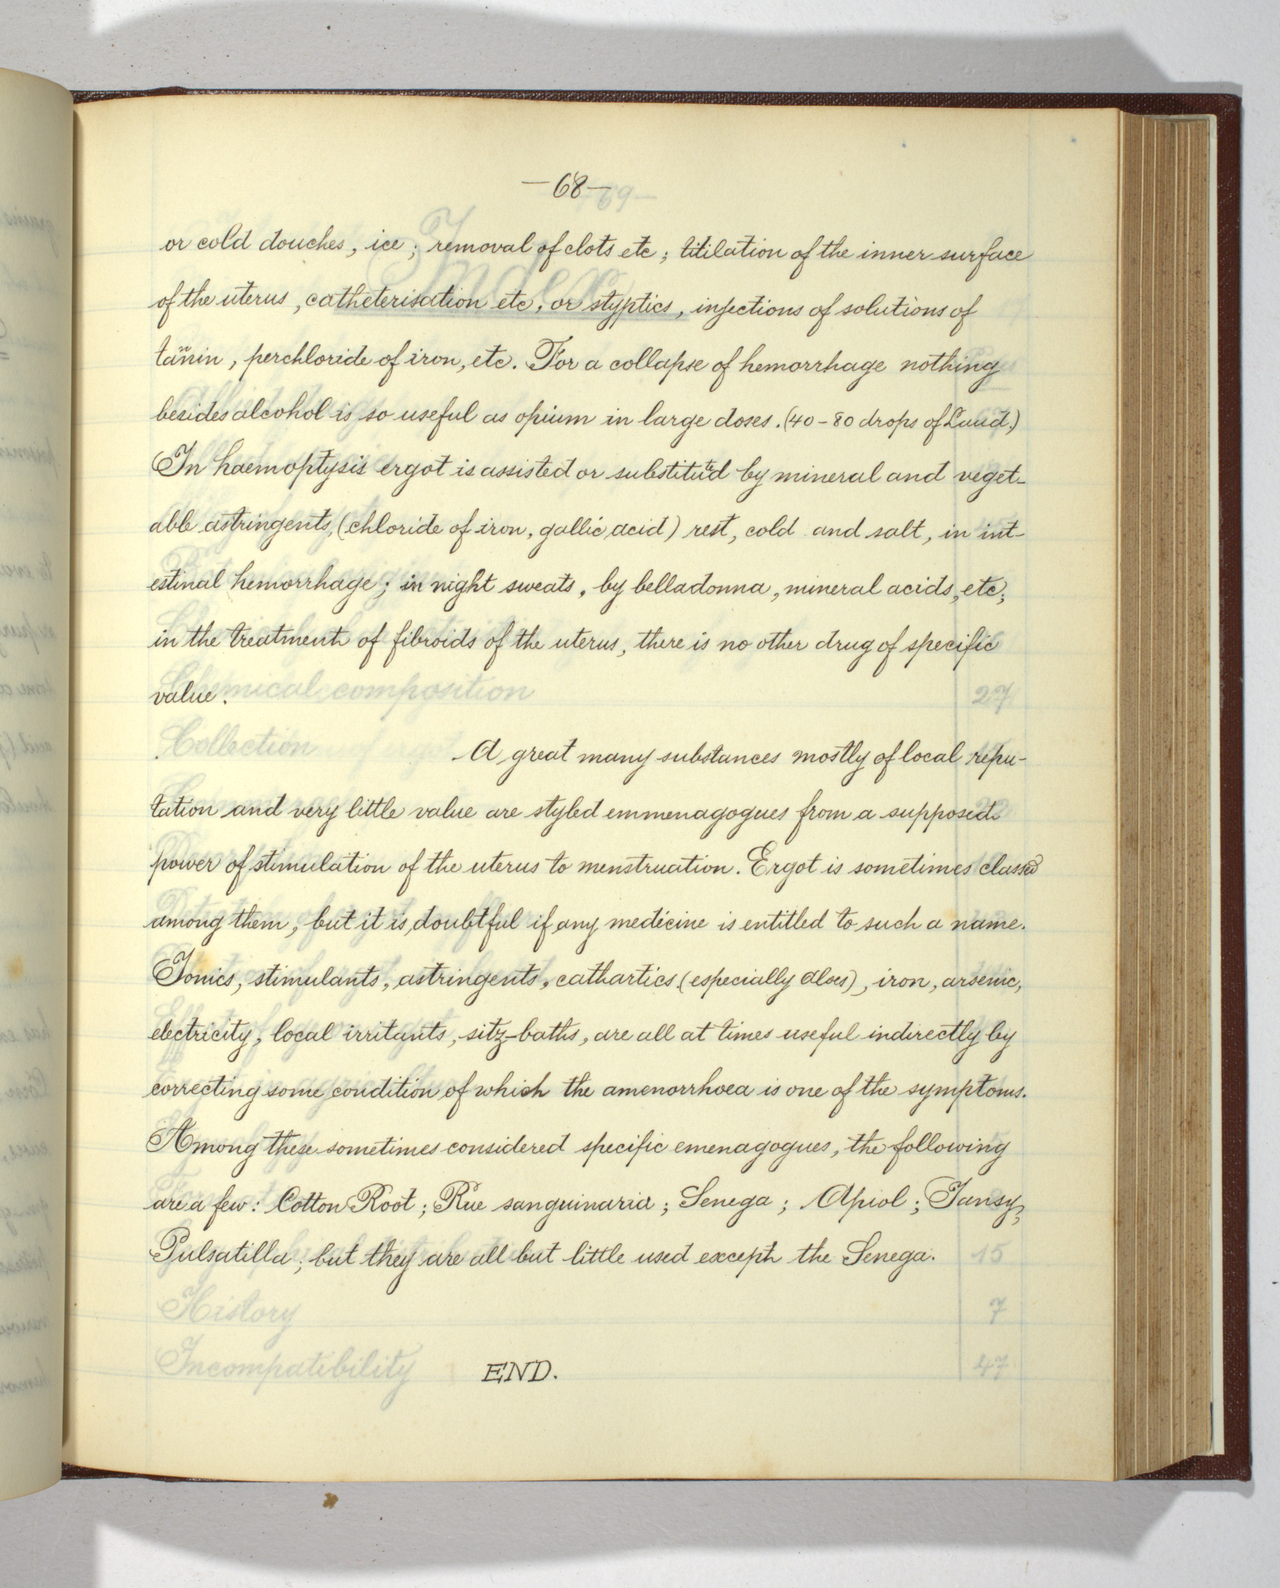 —68—
or cold douches, ice; removal of clots etc; titilation of the inner surface
of the uterus, catheterisation etc, or styptics, injections of solutions of
tannin, perchloride of iron, etc. For a collapse of hemorrhage nothing
besides alcohol is so useful as opium in large doses. (40-80 drops of Laud.)
In haemoptysis ergot is assisted or substituted by mineral and veget-
able astringents, (chloride of iron, gallic acid) rest, cold and salt, in int-
estinal hemorrhage; in night sweats, by belladonna, mineral acids, etc;
in the treatment of fibroids of the uterus, there is no other drug of specific
value.
A great many substances mostly of local repu-
tation and very little value are styled emmenagogues from a supposed
power of stimulation of the uterus to menstruation. Ergot is sometimes classed
among them, but it is doubtful if any medicine is entitled to such a name.
Tonics, stimulants, astringents, cathartics (especially aloes), iron, arsenic,
electricity, local irritants, sitz-baths, are all at times useful indirectly by
correcting some condition of which the amenorrhoea is one of the symptoms.
Among these sometimes considered specific emenagogues, the following
are a few: Cotton Root; Rue sanguinaria; Senega; Apiol; Tansy;
Pulsatilla; but they are all but little used except the Senega.
END.